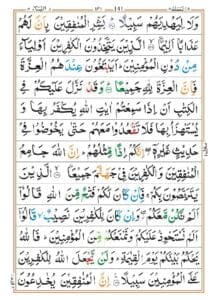 وَلَا لِيَهْدِيَهُمْ سَبِيْلًا ۝ بَشِّرِ الْمُنٰفِقِيْنَ بِاَنَّ لَهُمْ
عَذَابًا اَلِيْمًا ۝ الَّذِيْنَ يَتَّخِذُوْنَ الْكٰفِرِيْنَ اَوْلِيَآءَ
مِنْ دُوْنِ الْمُؤْمِنِيْنَ ؕ اَيَبْتَغُوْنَ عِنْدَهُمُ الْعِزَّةَ فَاِنَّ
الْعِزَّةَ لِلّٰهِ جَمِيْعًا ۝ وَقَدْ نَزَّلَ عَلَيْكُمْ فِي
الْكِتٰبِ اَنْ اِذَا سَمِعْتُمْ اٰيٰتِ اللّٰهِ يُكْفَرُ بِهَا وَ
يُسْتَهْزَاُ بِهَا فَلَا تَقْعُدُوْا مَعَهُمْ حَتّٰى يَخُوْضُوْا فِيْ
حَدِيْثٍ غَيْرِهٖۤ ۖ اِنَّكُمْ اِذًا مِّثْلُهُمْ ؕ اِنَّ اللّٰهَ جَامِعُ
الْمُنٰفِقِيْنَ وَالْكٰفِرِيْنَ فِيْ جَهَنَّمَ جَمِيْعًا ۝ الَّذِيْنَ
يَتَرَبَّصُوْنَ بِكُمْ ۚ فَاِنْ كَانَ لَكُمْ فَتْحٌ مِّنَ اللّٰهِ قَالُوْۤا
اَلَمْ نَكُنْ مَّعَكُمْ ۖ وَاِنْ كَانَ لِلْكٰفِرِيْنَ نَصِيْبٌ ۙ قَالُوْۤا
اَلَمْ نَسْتَحْوِذْ عَلَيْكُمْ وَنَمْنَعْكُمْ مِّنَ الْمُؤْمِنِيْنَ ؕ فَاللّٰهُ
يَحْكُمُ بَيْنَكُمْ يَوْمَ الْقِيٰمَةِ ؕ وَلَنْ يَّجْعَلَ اللّٰهُ لِلْكٰفِرِيْنَ
عَلَى الْمُؤْمِنِيْنَ سَبِيْلًا ۝ اِنَّ الْمُنٰفِقِيْنَ يُخٰدِعُوْنَ